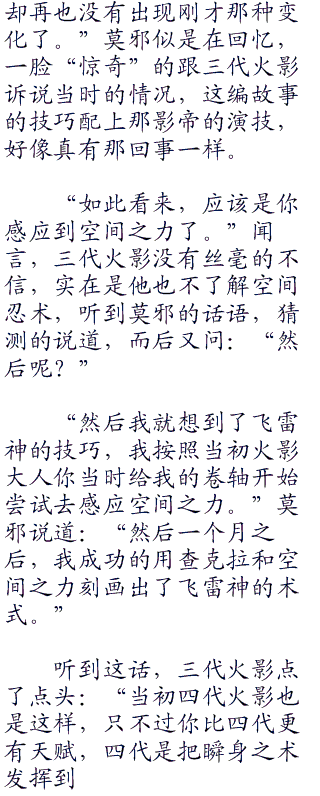 却再也没有出现刚才那种变
化了。”莫邪似是在回忆，
一脸“惊奇”的跟三代火影
诉说当时的情况，这编故事
的技巧配上那影帝的演技，
好像真有那回事一样。
“如此看来，应该是你
感应到空间之力了。”闻
言，三代火影没有丝毫的不
信，实在是他也不了解空间
忍术，听到莫邪的话语，猜
测的说道，而后又问：“然
后呢？”
“然后我就想到了飞雷
神的技巧，我按照当初火影
大人你当时给我的卷轴开始
尝试去感应空间之力。”莫
邪说道：“然后一个月之
后，我成功的用查克拉和空
间之力刻画出了飞雷神的术
式。”
听到这话，三代火影点
了点头：“当初四代火影也
是这样，只不过你比四代更
有天赋，四代是把瞬身之术
发挥到